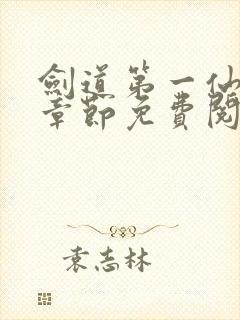 劍道第一仙
章節免費閱
袁志林